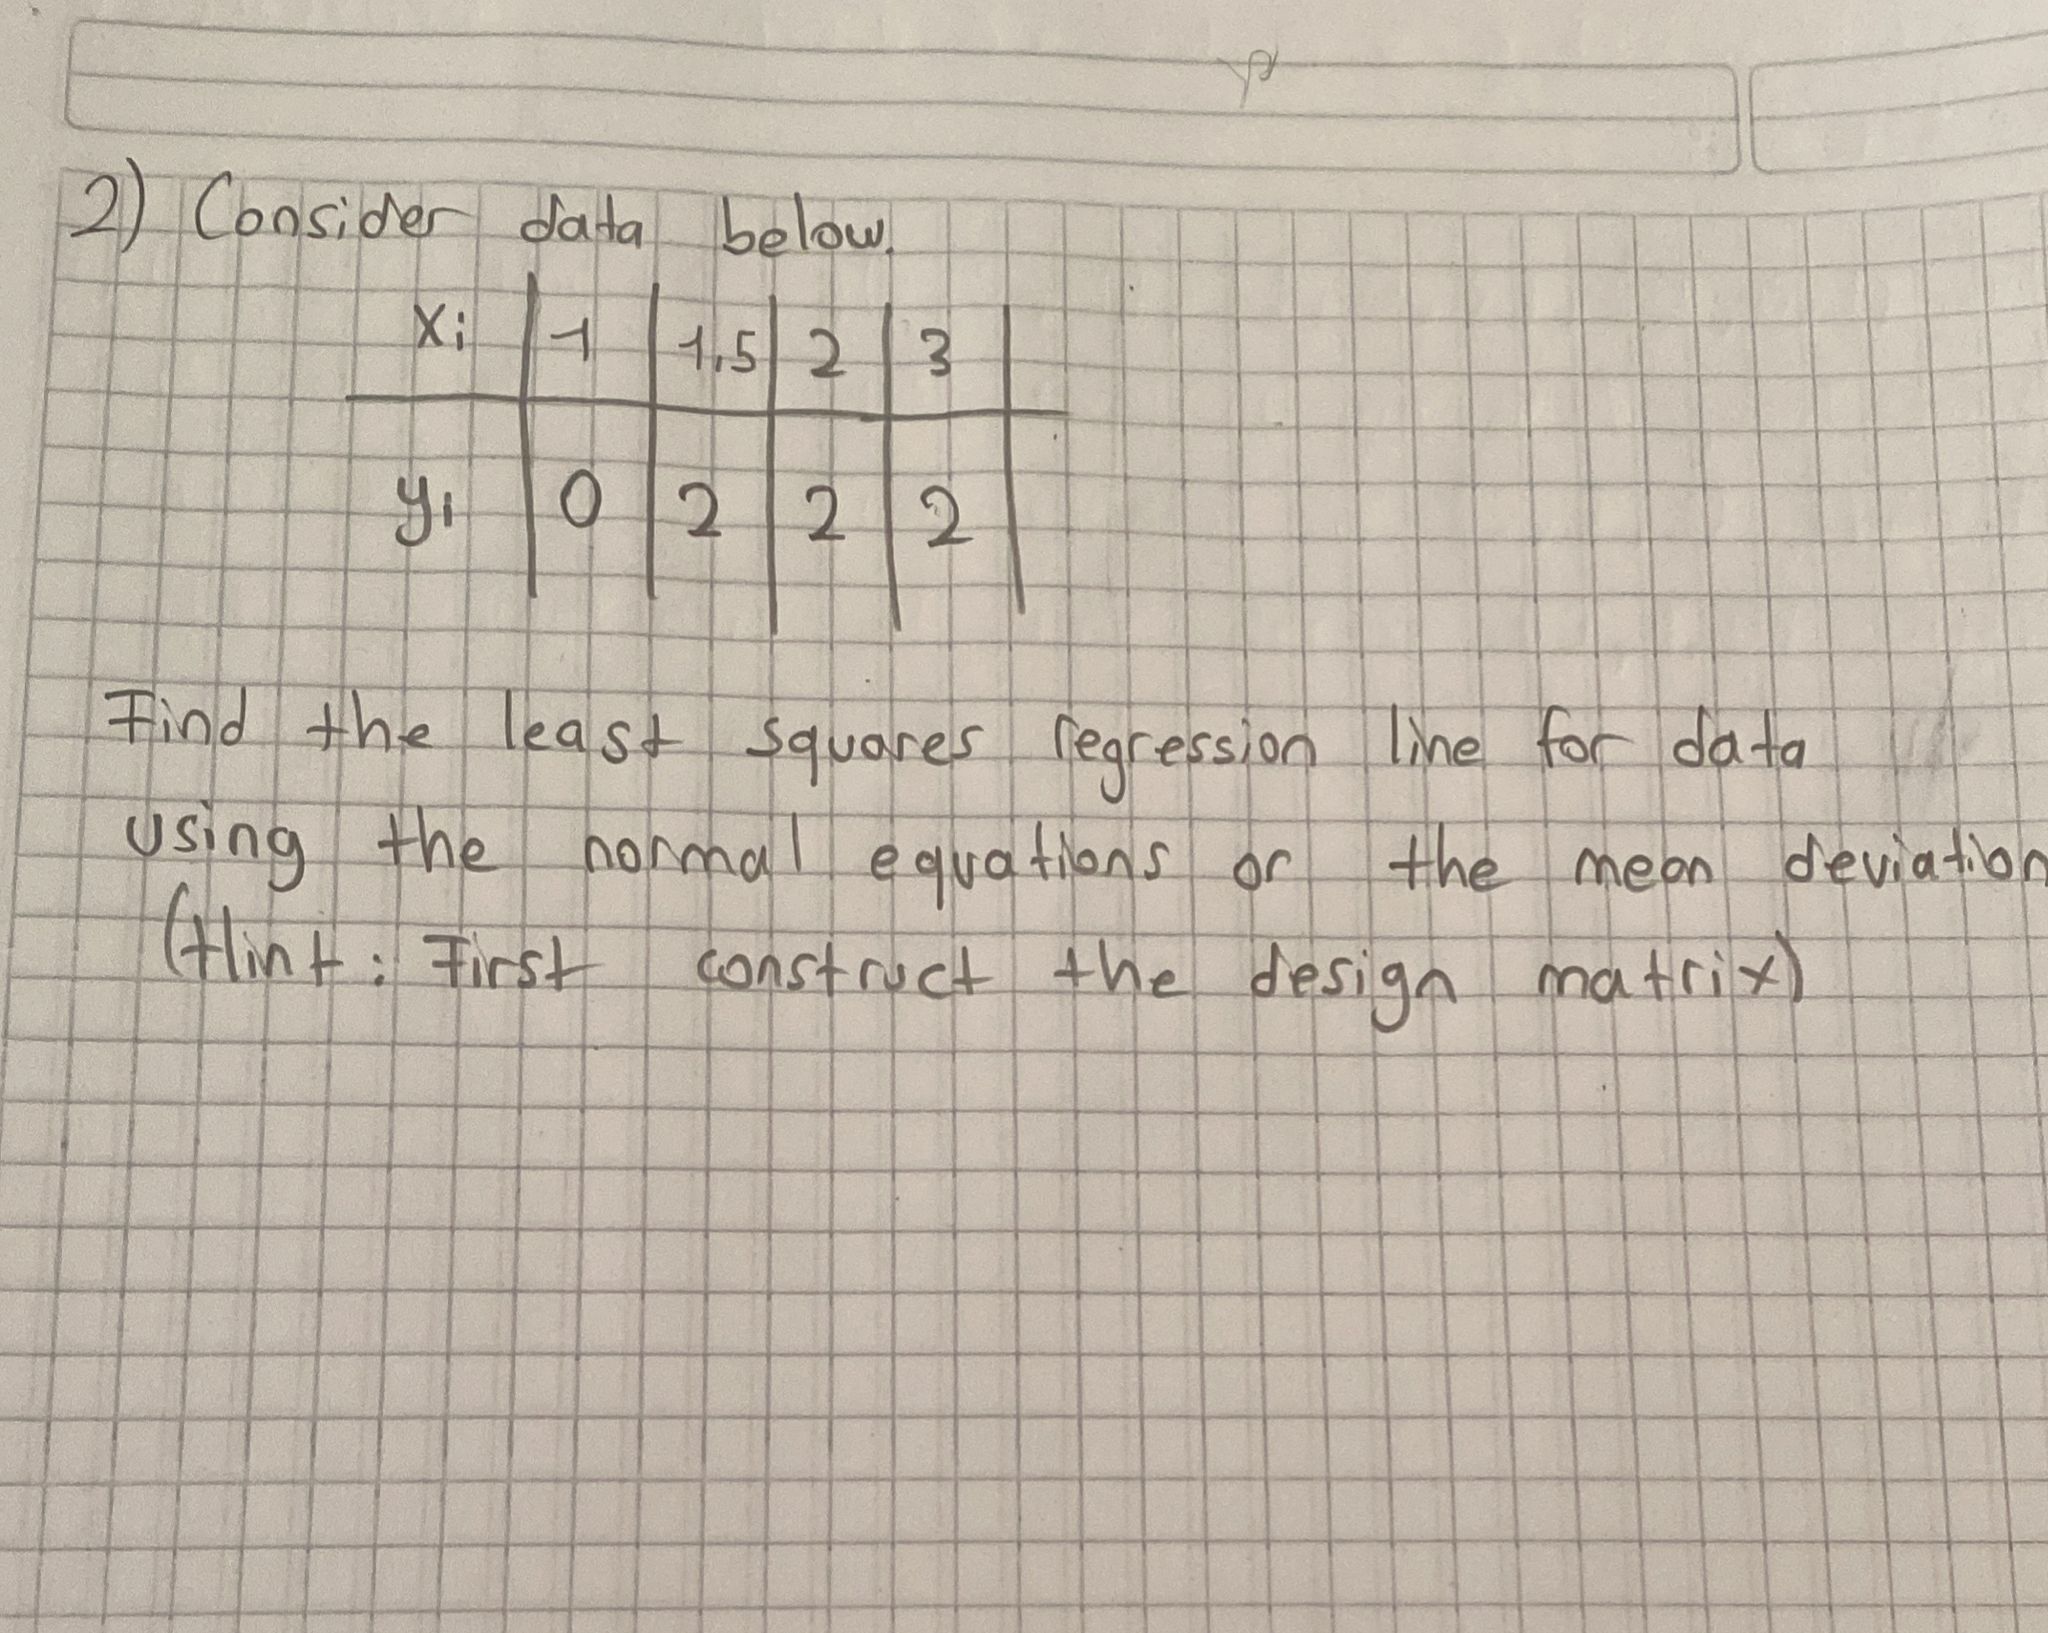 2) Consider data below.
xi 1 1,5 2 3
yi 0 2 2 2
Find the least squares regression line for data
using the normal equations or the mean deviation
(Hint: First construct the design matrix)